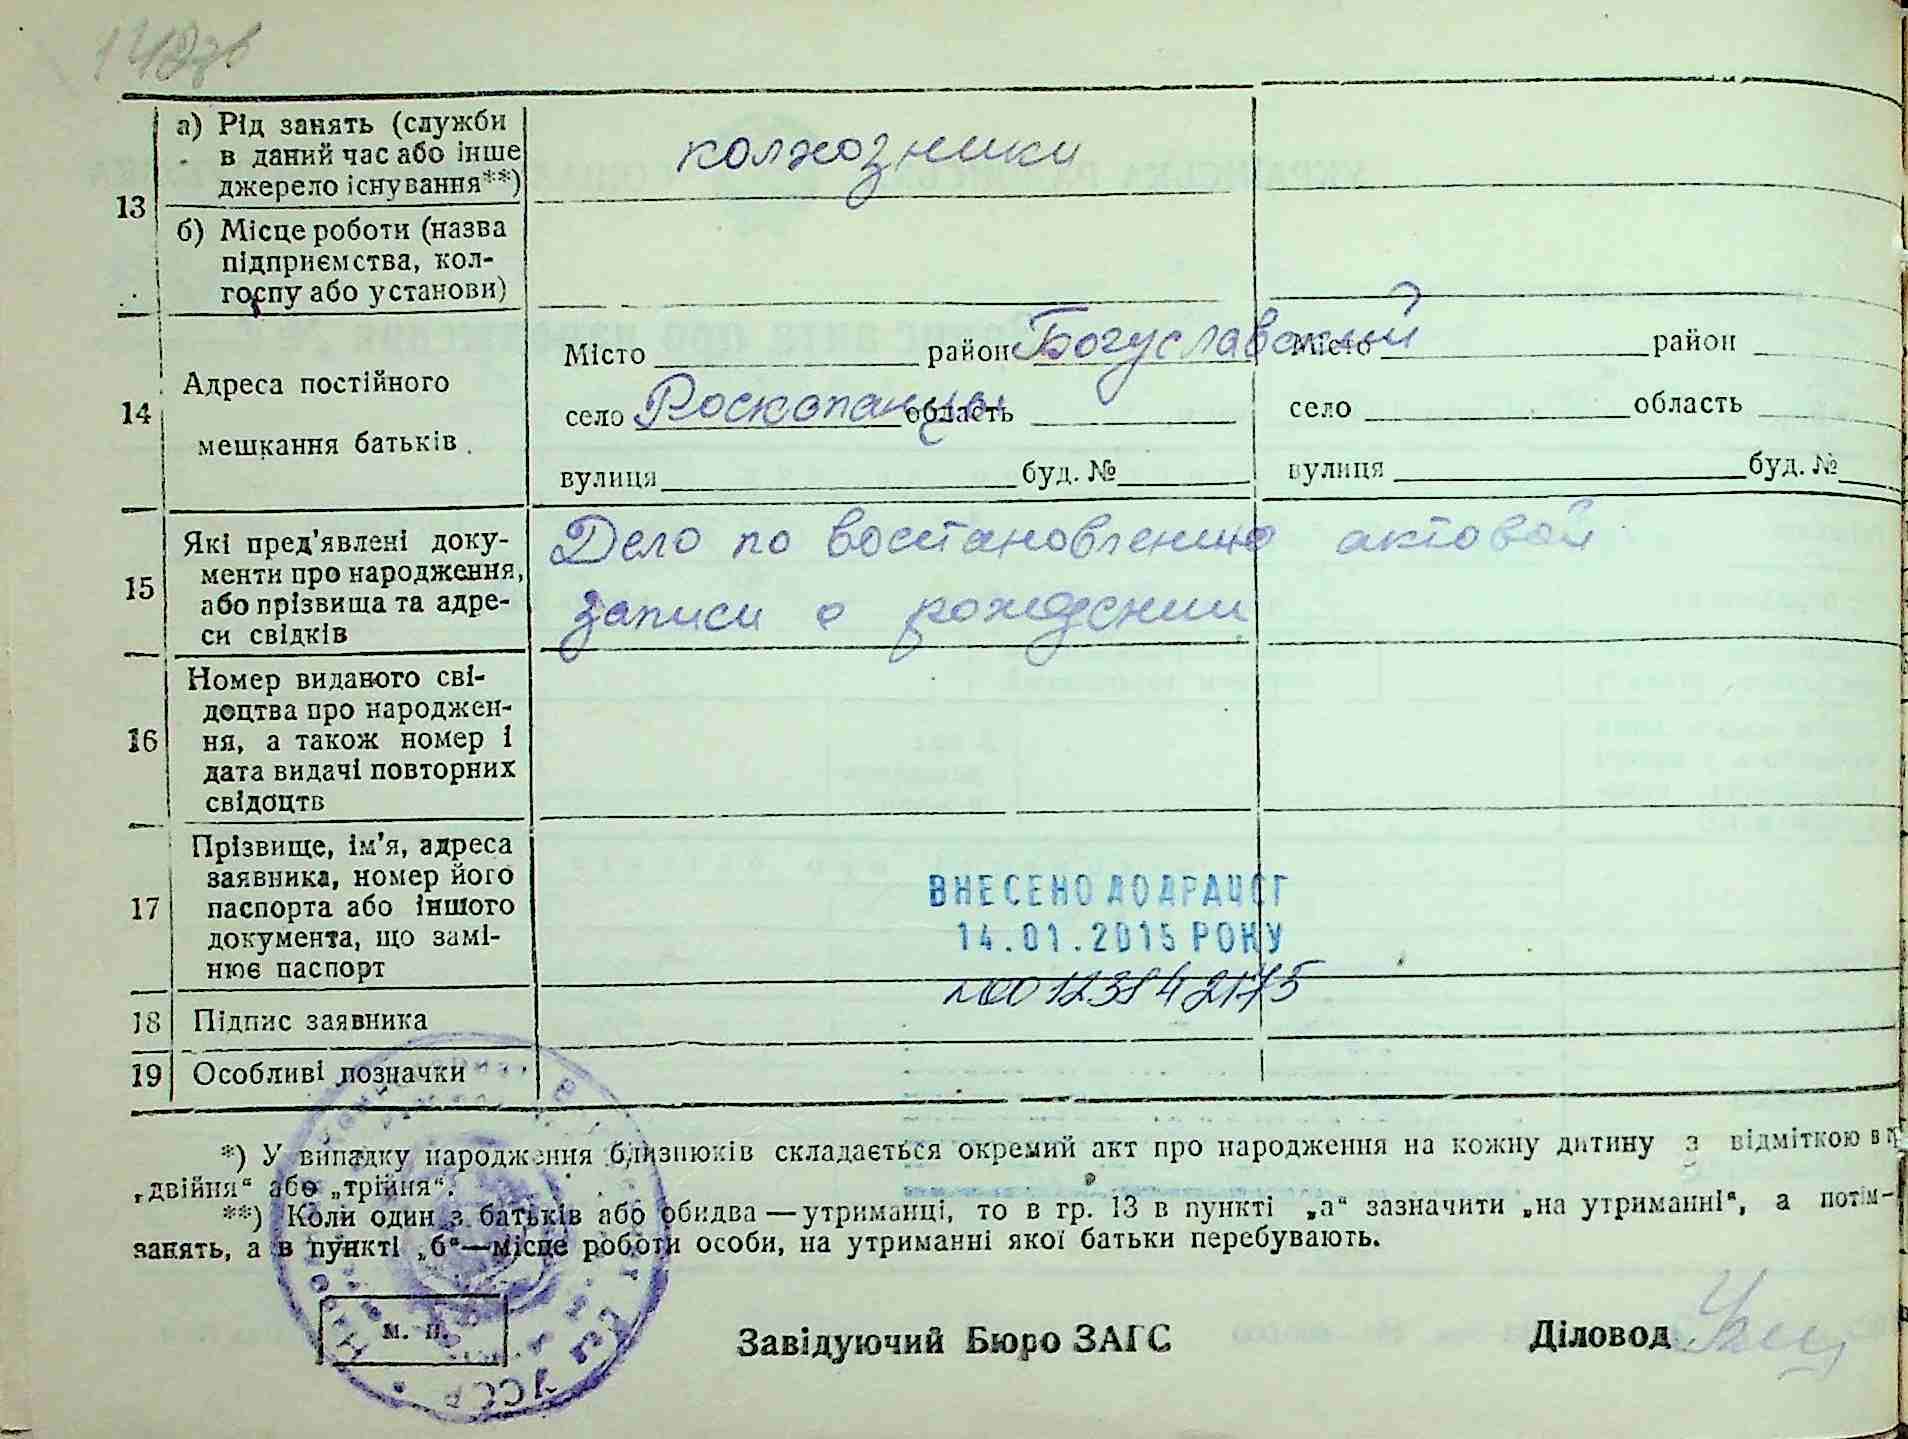 13
а) Рід занять (служби
в даний час або інше
джерело існування**)
колхозники
б) Місце роботи (назва
підприємства, кол-
госпу або установи)
14
Адреса постійного
мешкання батьків
Місто район Богуславский Місто район
село Роскопанцы область село область
вулиця буд. № вулиця буд. №
15
Які пред'явлені доку-
менти про народження,
або прізвища та адре-
си свідків
Дело по восстановлению актовой
записи о рождении
16
Номер виданого сві-
доцтва про народжен-
ня, а також номер і
дата видачі повторних
свідоцтв
17
Прізвище, ім'я, адреса
заявника, номер його
паспорта або іншого
документа, що замі-
нює паспорт
ВНЕСЕНО ДО ДРАЦСГ
14.01.2015 РОКУ
18 Підпис заявника
19 Особливі позначки
*) У випадку народження близнюків складається окремий акт про народження на кожну дитину з відміткою в
„двійня“ або „трійня“.
**) Коли один з батьків або обидва — утриманці, то в гр. 13 в пункті „а“ зазначити „на утриманні“, а потім—
занять, а в пункті „б“—місце роботи особи, на утриманні якої батьки перебувають.
м. п.
Завідуючий Бюро ЗАГС
Діловод
УССР